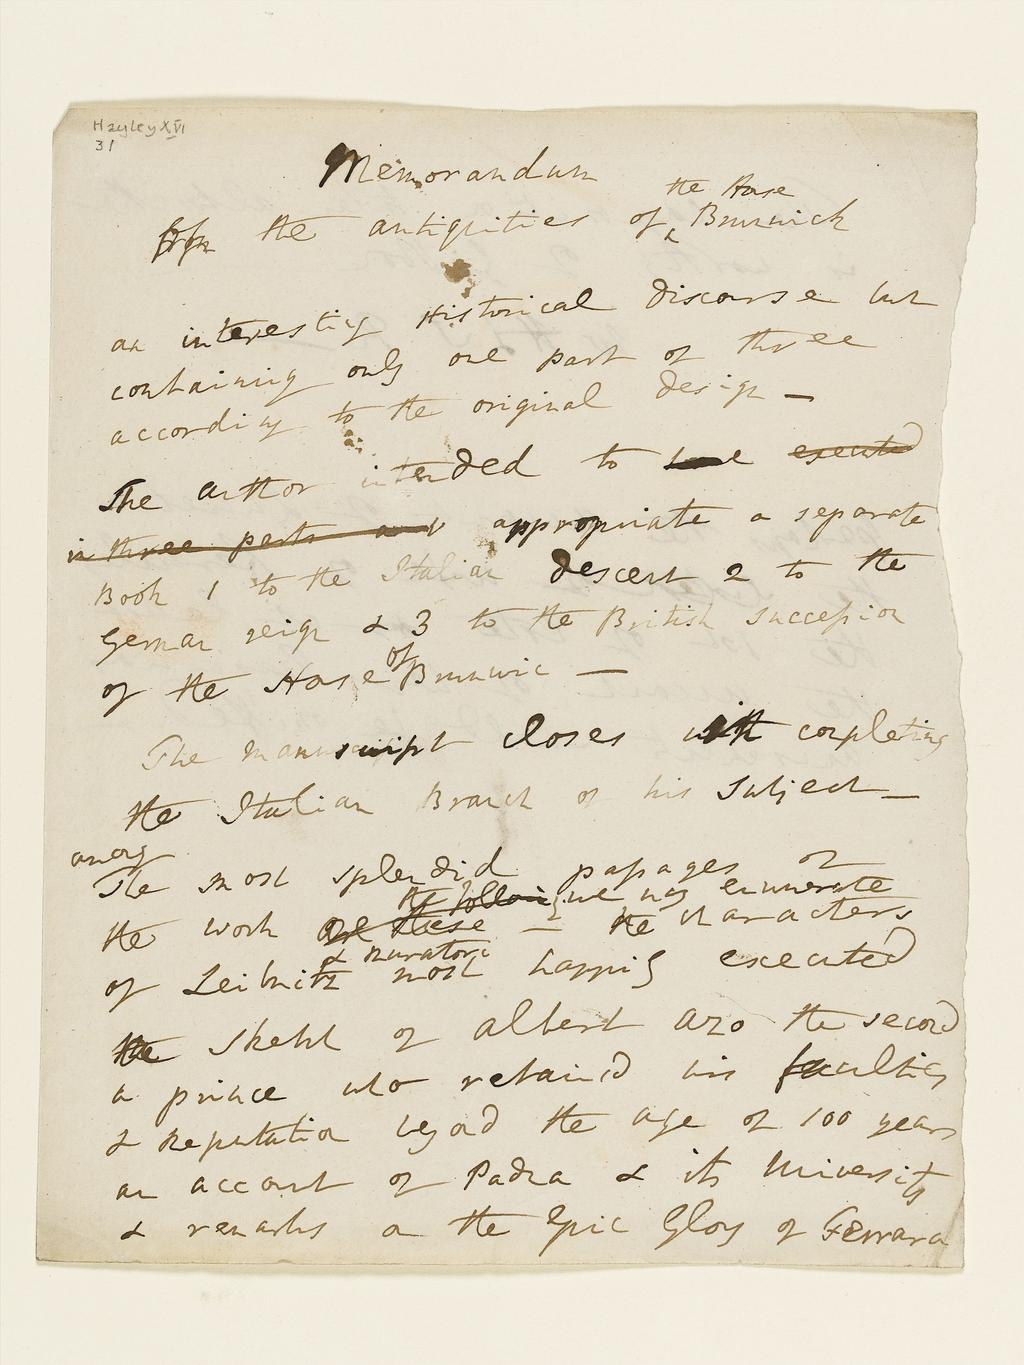 Hayley XVI
31
Memorandum
from the antiquities of the House Brunswick
an interesting Historical discourse but
containing only one part of three
according to the original design —
The author intended to have executed
in three parts and appropriate a separate
Book 1 to the Italian descent 2 to the
German reign & 3 to the British succession
of the House of Brunswic —
The manuscript closes with completing
the Italian Branch of his Subject —
among
The most splendid passages of
the following we may enumerate
the work are these — the characters
& Muratori
of Leibnitz most happily executed
the Sketch of Albert Azo the second
a prince who retain'd his faculties
& Reputation beyond the age of 100 years
an account of Padua & its University
& remarks on the Epic Glory of Ferrara